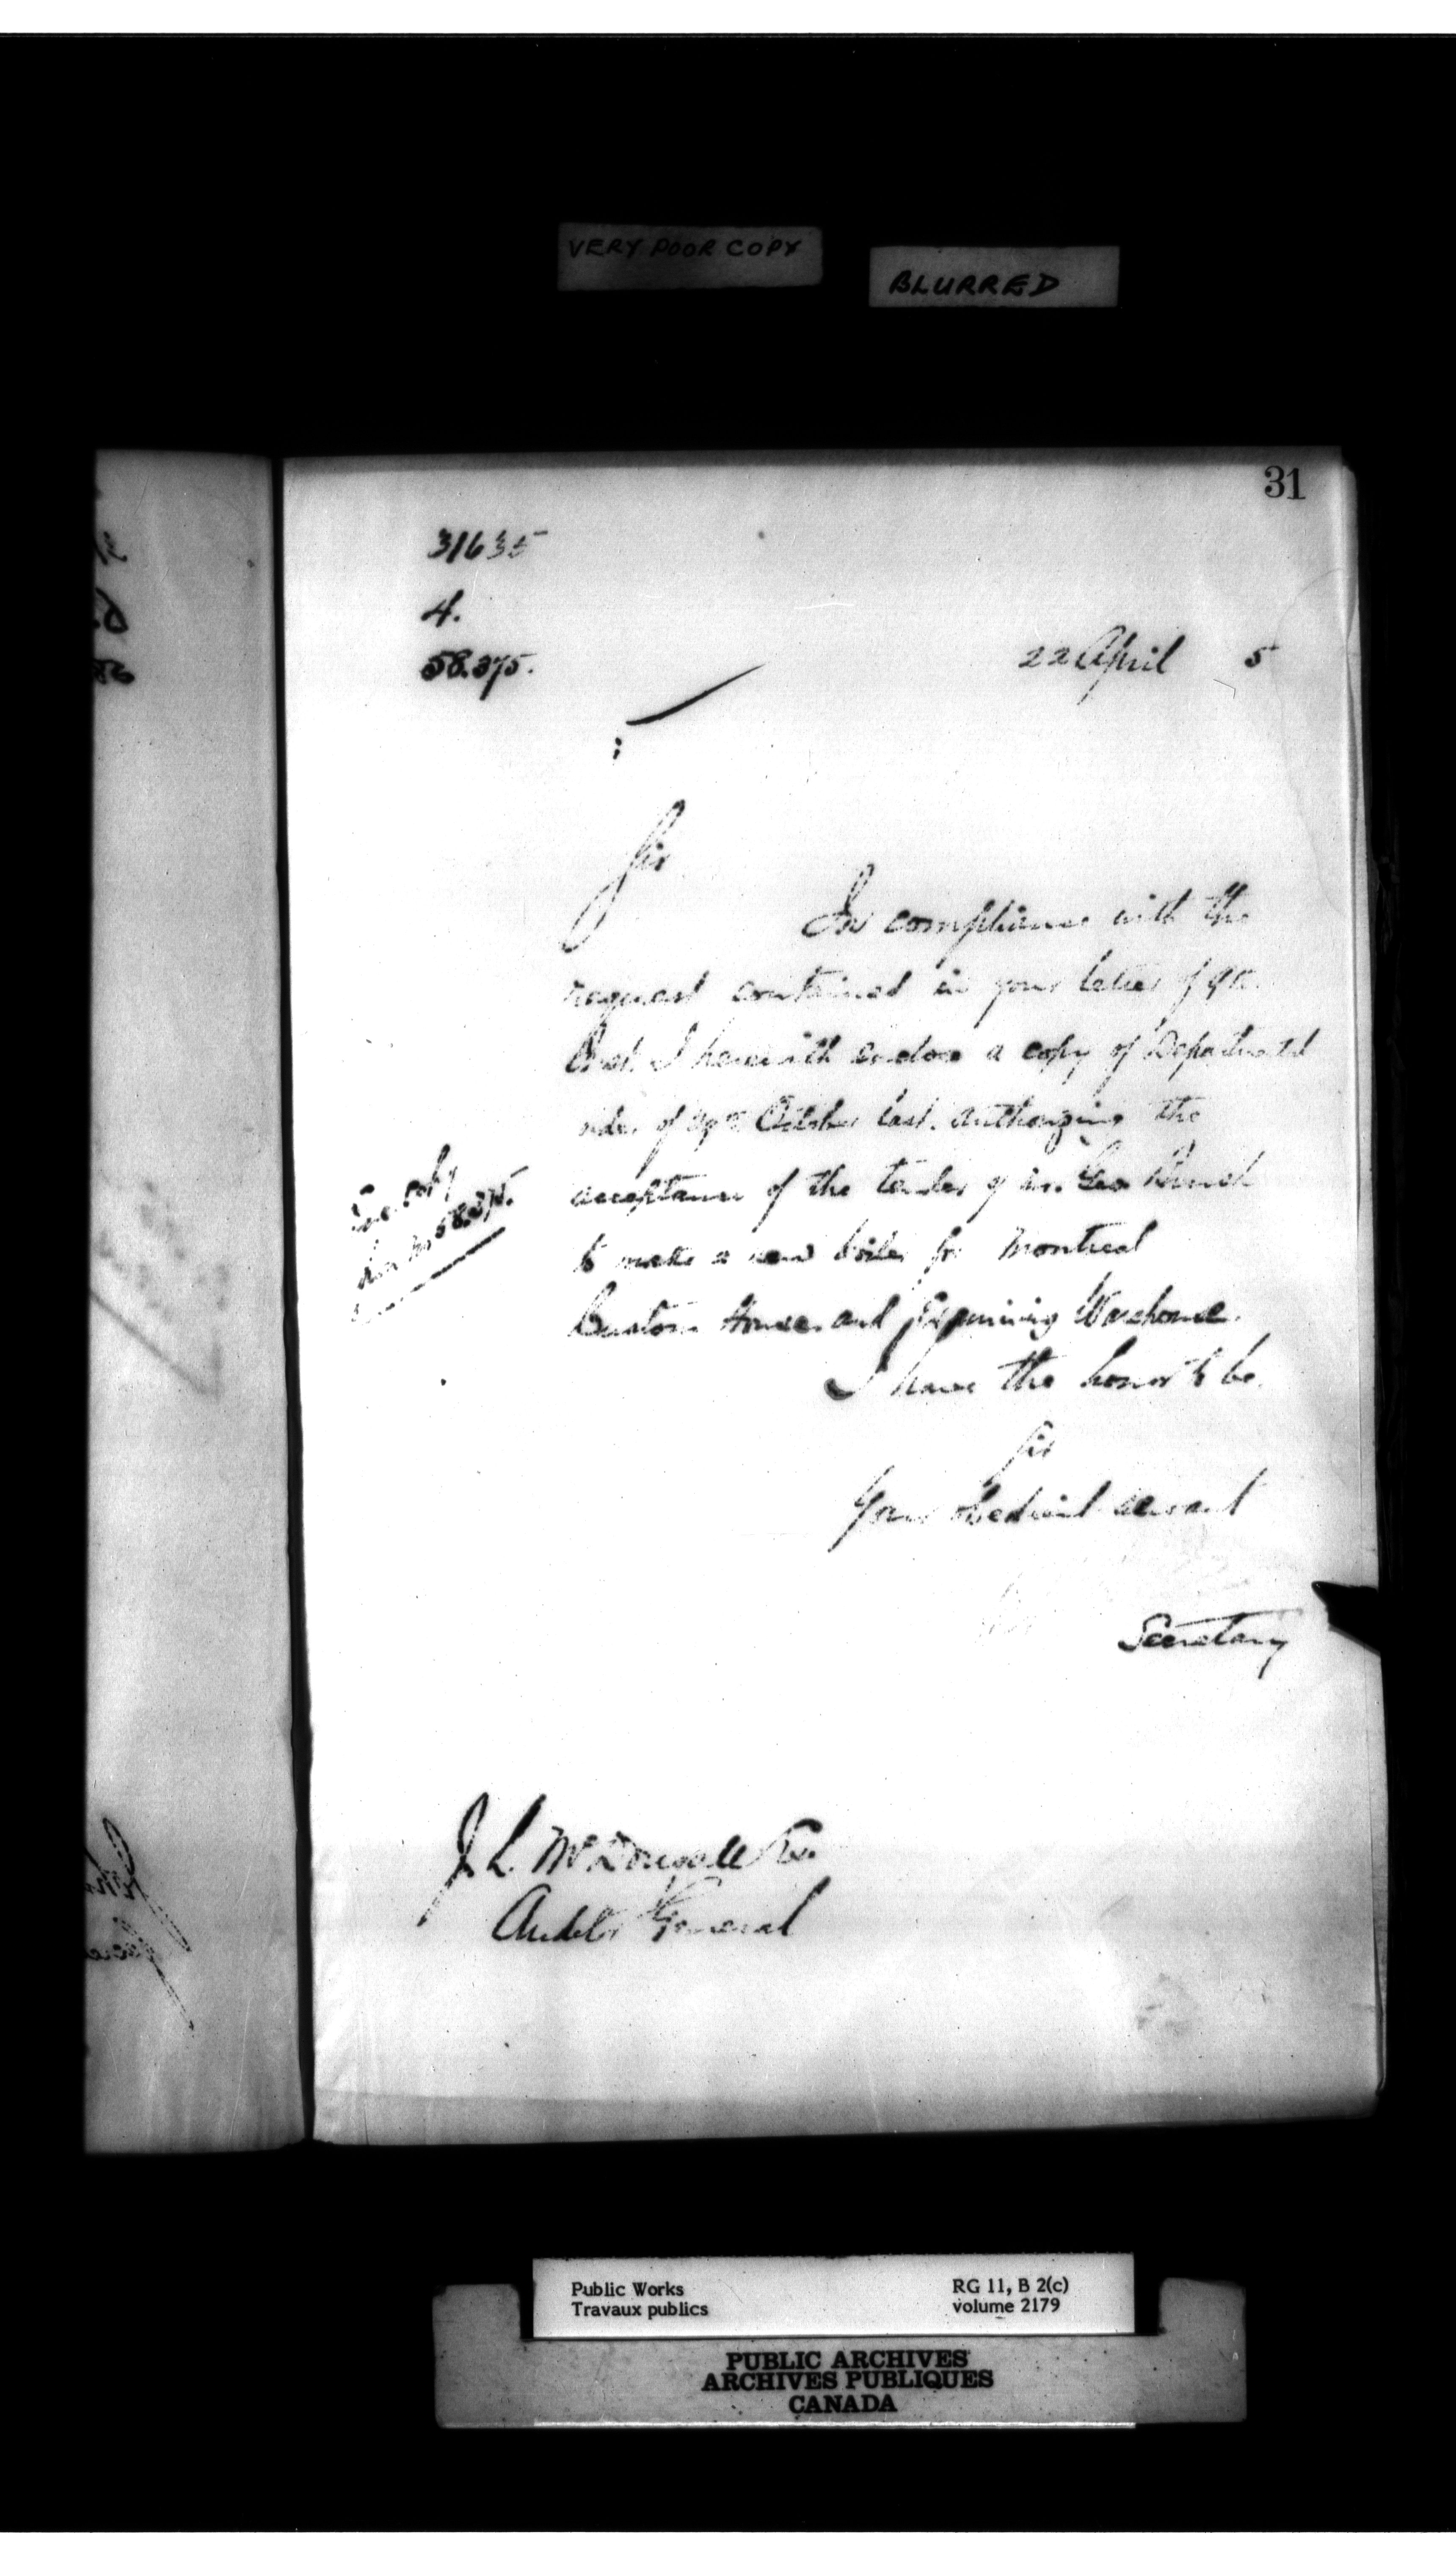 VERY POOR COPY
BLURRED
31
31635
4.
58.375.
22 April 5
Sir
In compliance with the
request contained in your letter of 9th
Inst. I herewith enclose a copy of Departmental
order of October last. authorizing the
acceptance of the tender of Mr. Geo
to make a new boiler for Montreal
Custom House and Examining Warehouse.
I have the honor to be
Sir
Your obedient servant
Secretary
copy
58.375.
J. L. McDougall Esq.
Auditor General
Public Works
Travaux publics
RG 11, B 2(c)
volume 2179
PUBLIC ARCHIVES
ARCHIVES PUBLIQUES
CANADA